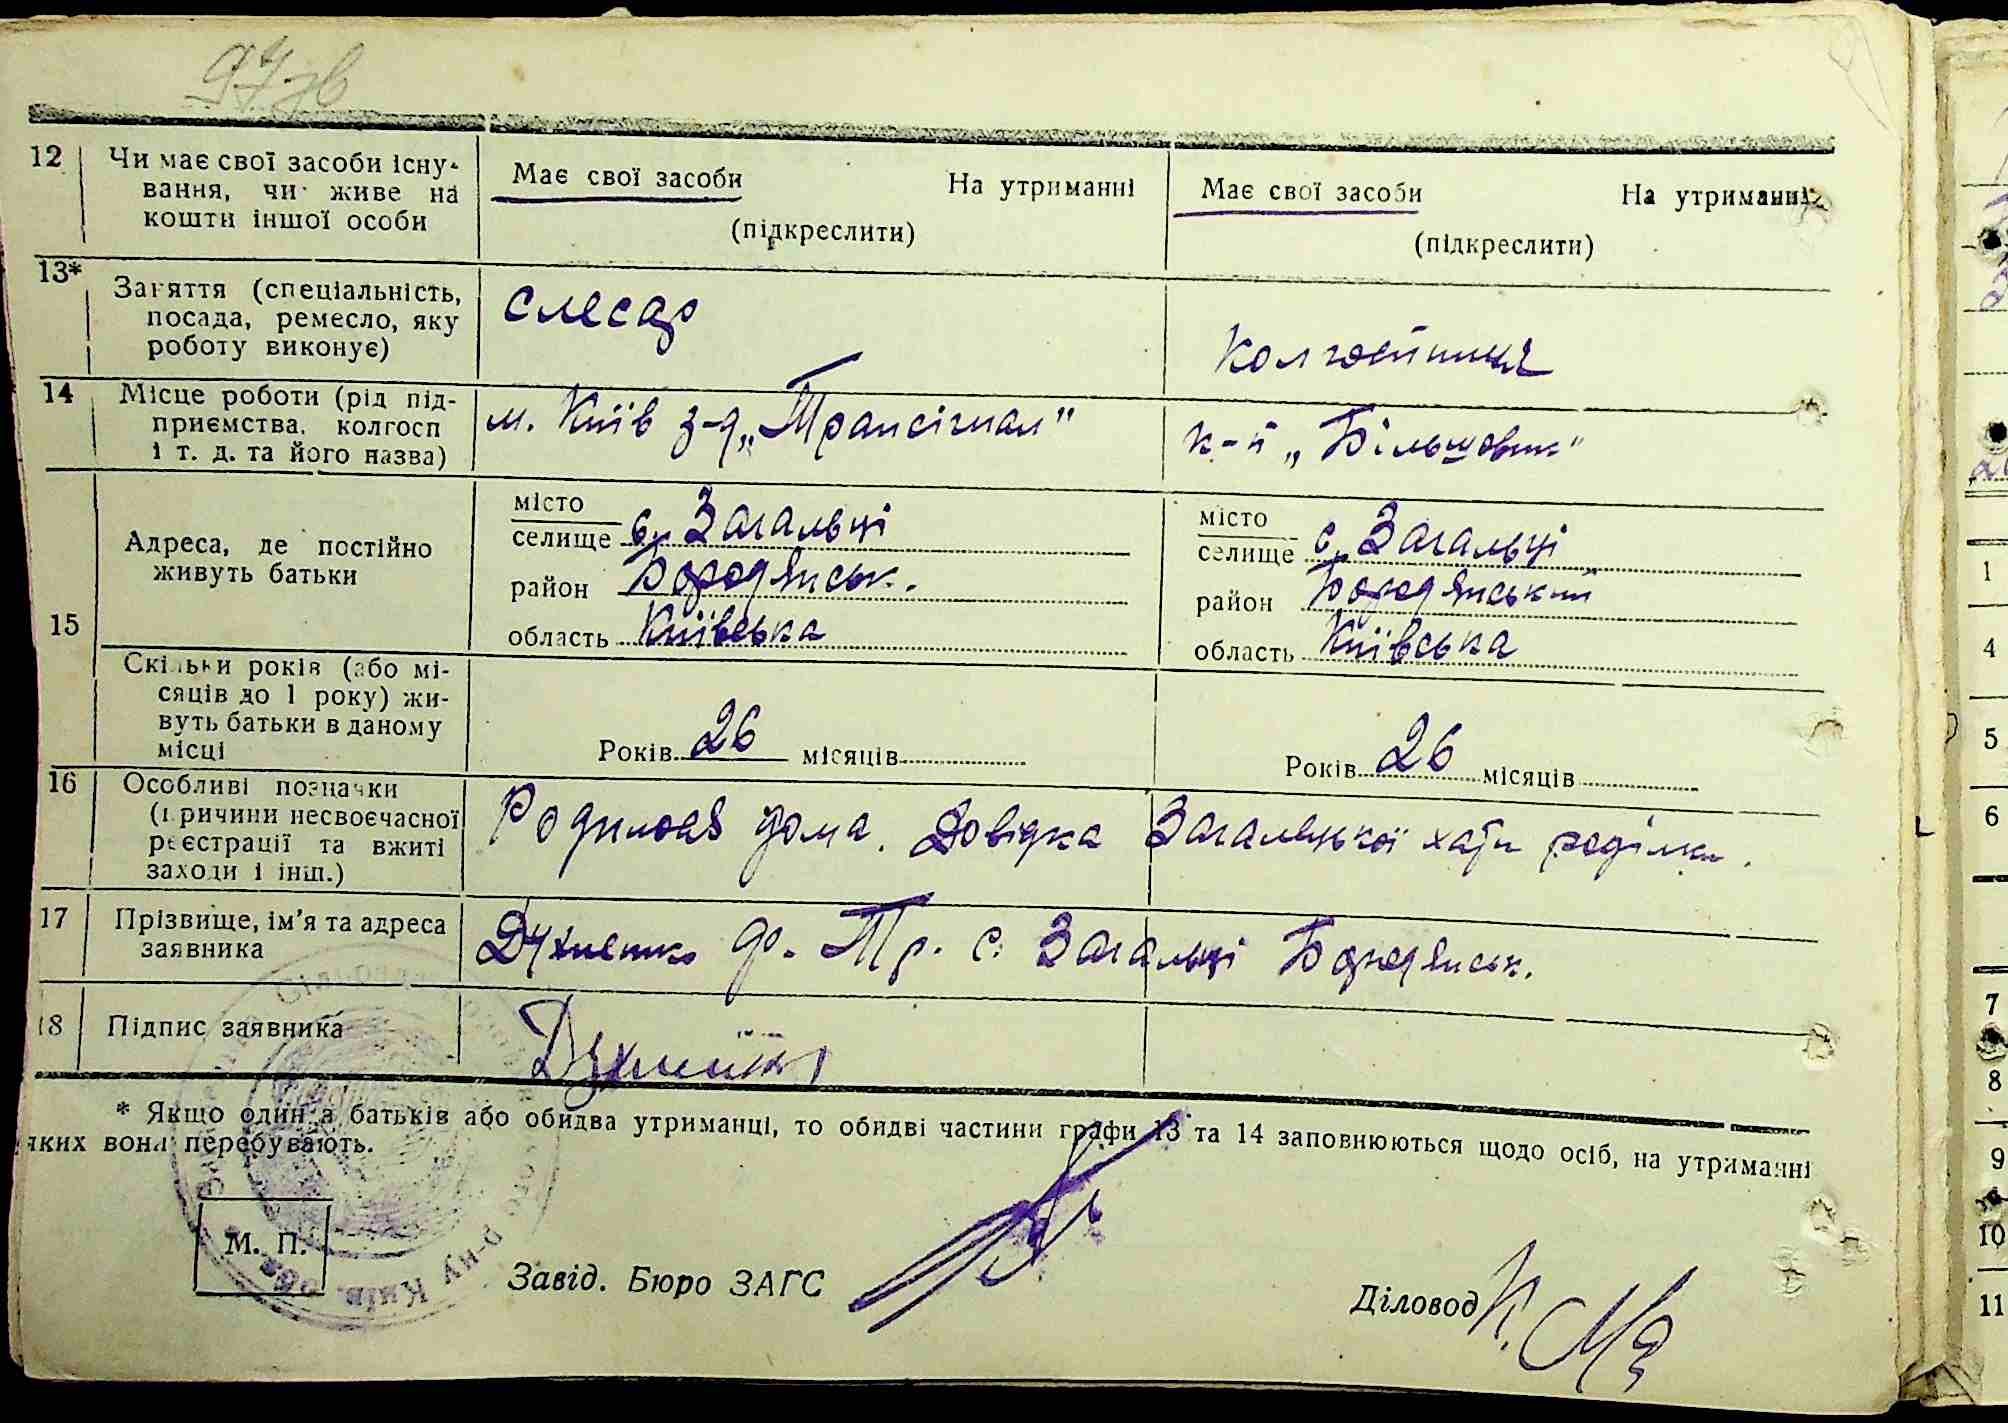 97 зв
12 Чи має свої засоби існу-
вання, чи живе на
кошти іншої особи
Має свої засоби На утриманні
(підкреслити)
Має свої засоби На утриманні
(підкреслити)
13* Заняття (спеціальність,
посада, ремесло, яку
роботу виконує)
слесар
колгоспниця
14 Місце роботи (рід під-
приємства, колгосп
і т. д. та його назва)
м. Київ з-д „Трансігнал"
к-п „Більшовик"
15
Адреса, де постійно
живуть батьки
місто
селище с. Загальці
район Бородянськ.
область Київська
місто
селище с. Загальці
район Бородянський
область Київська
Скільки років (або мі-
сяців до 1 року) жи-
вуть батьки в даному
місці
Років 26 місяців
Років 26 місяців
16 Особливі позначки
(причини несвоєчасної
реєстрації та вжиті
заходи і інш.)
Родилась дома. Довідка Загалецької хати роділки.
17 Прізвище, ім'я та адреса
заявника
Духненко Ф. Тр. с. Загальці Бородянськ.
18 Підпис заявника
* Якщо один з батьків або обидва утриманці, то обидві частини графи 13 та 14 заповнюються щодо осіб, на утриманні
яких вони перебувають.
М. П.
р-ну Київ.
Завід. Бюро ЗАГС
Діловод
1
4
5
6
7
8
9
10
11